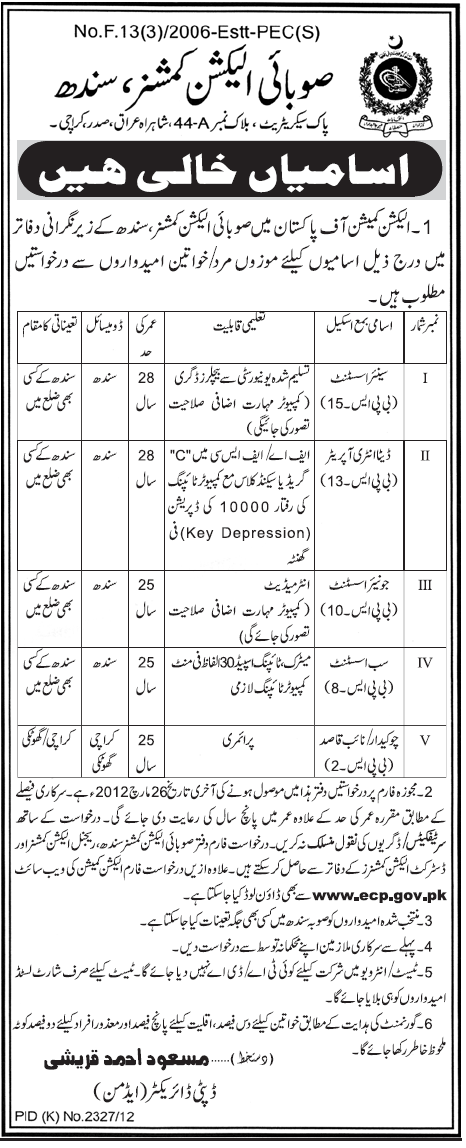 No.F.13(3)/2006-Estt-PEC(S)
صوبائی الیکشن کمشنر، سندھ
پاک سیکریٹریٹ، بلاک نمبر 44-A، شاہراہ عراق، صدر، کراچی۔
اسامیاں خالی ھیں
1۔ الیکشن کمیشن آف پاکستان میں صوبائی الیکشن کمشنر، سندھ کے زیر نگرانی دفاتر
میں درج ذیل اسامیوں کیلئے موزوں مرد/خواتین امیدواروں سے درخواستیں
مطلوب ہیں۔
نمبر شمار | اسامی بمع اسکیل | تعلیمی قابلیت | عمر کی حد | ڈومیسائل | تعیناتی کا مقام
I | سینئر اسسٹنٹ (بی پی ایس۔15) | تسلیم شدہ یونیورسٹی سے بیچلرز ڈگری (کمپیوٹر مہارت اضافی صلاحیت تصور کی جائیگی) | 28 سال | سندھ | سندھ کے کسی بھی ضلع میں
II | ڈیٹا انٹری آپریٹر (بی پی ایس۔13) | ایف اے/ایف ایس سی میں "C" گریڈ یا سیکنڈ کلاس مع کمپیوٹر ٹائپنگ کی رفتار 10000 کی ڈپریشن (Key Depression) فی گھنٹہ | 28 سال | سندھ | سندھ کے کسی بھی ضلع میں
III | جونیئر اسسٹنٹ (بی پی ایس۔10) | انٹرمیڈیٹ (کمپیوٹر مہارت اضافی صلاحیت تصور کی جائے گی) | 25 سال | سندھ | سندھ کے کسی بھی ضلع میں
IV | سب اسسٹنٹ (بی پی ایس۔8) | میٹرک، ٹائپنگ اسپیڈ 30 الفاظ فی منٹ کمپیوٹر ٹائپنگ لازمی | 25 سال | سندھ | سندھ کے کسی بھی ضلع میں
V | چوکیدار/نائب قاصد (بی پی ایس۔2) | پرائمری | 25 سال | کراچی گھوٹکی | کراچی/گھوٹکی
2۔ مجوزہ فارم پر درخواستیں دفتر ہذا میں موصول ہونے کی آخری تاریخ 26 مارچ 2012ء ہے۔ سرکاری فیصلے
کے مطابق مقررہ عمر کی حد کے علاوہ عمر میں پانچ سال کی رعایت دی جائے گی۔ درخواست کے ساتھ
سرٹیفکیٹس/ڈگریوں کی نقول منسلک نہ کریں۔ درخواست فارم دفتر صوبائی الیکشن کمشنر سندھ، ریجنل الیکشن کمشنر اور
ڈسٹرکٹ الیکشن کمشنرز کے دفاتر سے حاصل کر سکتے ہیں۔ علاوہ ازیں درخواست فارم الیکشن کمیشن کی ویب سائٹ
www.ecp.gov.pk سے بھی ڈاؤن لوڈ کیا جا سکتا ہے۔
3۔ منتخب شدہ امیدواروں کو صوبہ سندھ میں کسی بھی جگہ تعینات کیا جا سکتا ہے۔
4۔ پہلے سے سرکاری ملازمین اپنے محکمانہ توسط سے درخواست دیں۔
5۔ ٹیسٹ/انٹرویو میں شرکت کیلئے کوئی ٹی اے/ڈی اے نہیں دیا جائے گا۔ ٹیسٹ کیلئے صرف شارٹ لسٹڈ
امیدواروں کو ہی بلایا جائے گا۔
6۔ گورنمنٹ کی ہدایت کے مطابق خواتین کیلئے دس فیصد، اقلیت کیلئے پانچ فیصد اور معذور افراد کیلئے دو فیصد کوٹہ
ملحوظ خاطر رکھا جائے گا۔
(دستخط)...... مسعود احمد قریشی
ڈپٹی ڈائریکٹر (ایڈمن)
PID (K) No.2327/12